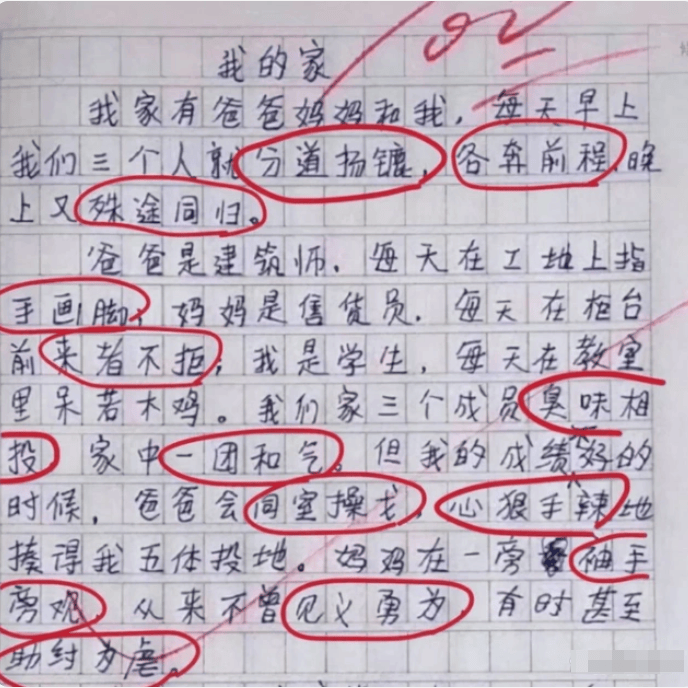 我的家
我家有爸爸妈妈和我，每天早上
我们三个人就分道扬镳，各奔前程，晚
上又殊途同归。
爸爸是建筑师，每天在工地上指
手画脚；妈妈是售货员，每天在柜台
前来者不拒；我是学生，每天在教室
里呆若木鸡。我们家三个成员臭味相
投，家中一团和气。但我的成绩不好的
时候，爸爸会同室操戈，心狠手辣地
揍得我五体投地。妈妈在一旁袖手
旁观，从来不曾见义勇为，有时甚至
助纣为虐。